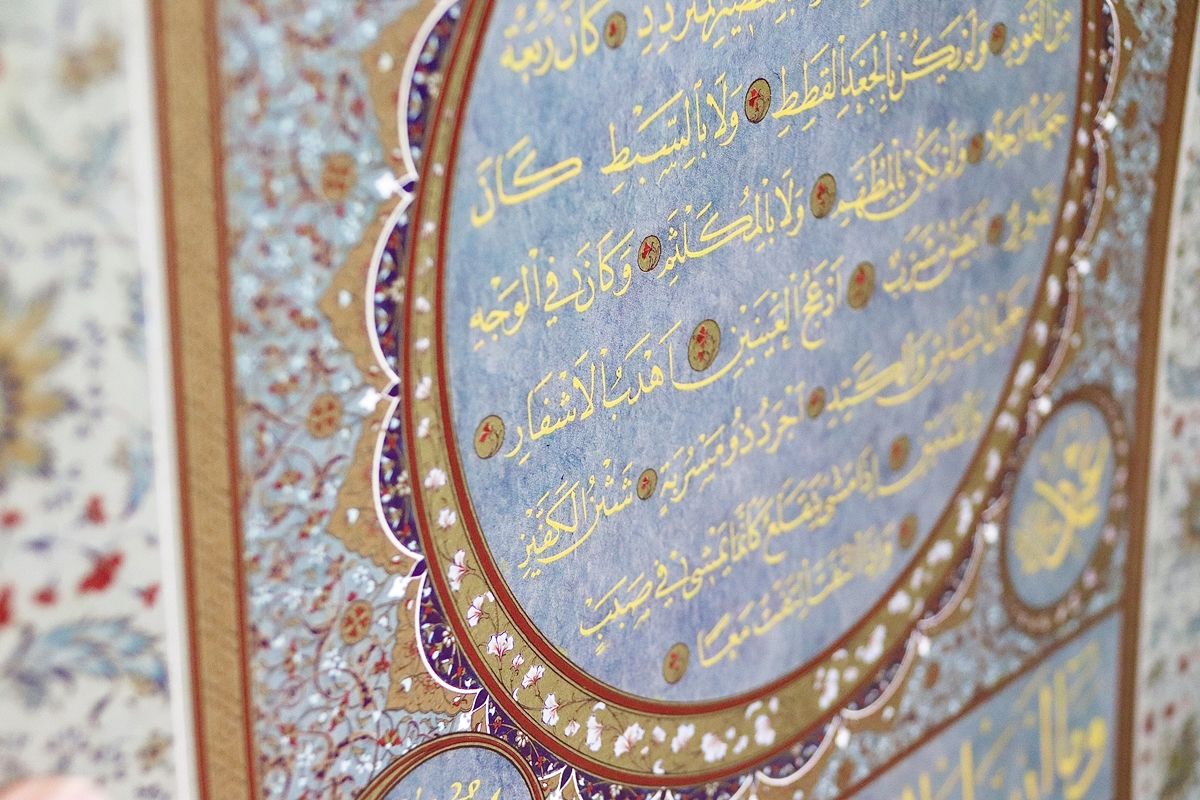 الْمُتَرَدِّدِ كَانَ رَبْعَةً
مِنَ الْقَوْمِ وَلَمْ يَكُنْ بِالْجَعْدِ الْقَطَطِ وَلَا بِالسَّبْطِ كَانَ
جَعْدًا رَجِلًا وَلَمْ يَكُنْ بِالْمُطَهَّمِ وَلَا بِالْمُكَلْثَمِ وَكَانَ فِي الْوَجْهِ
تَدْوِيرٌ اَبْيَضُ مُشْرَبٌ اَدْعَجُ الْعَيْنَيْنِ اَهْدَبُ الْاَشْفَارِ
جَلِيلُ الْمُشَاشِ وَالْكَتَدِ اَجْرَدُ ذُو مَسْرُبَةٍ شَثْنُ الْكَفَّيْنِ
وَالْقَدَمَيْنِ اِذَا مَشٰى يَتَقَلَّعُ كَاَنَّمَا يَمْشِي فِي صَبَبٍ
وَاِذَا الْتَفَتَ الْتَفَتَ مَعًا